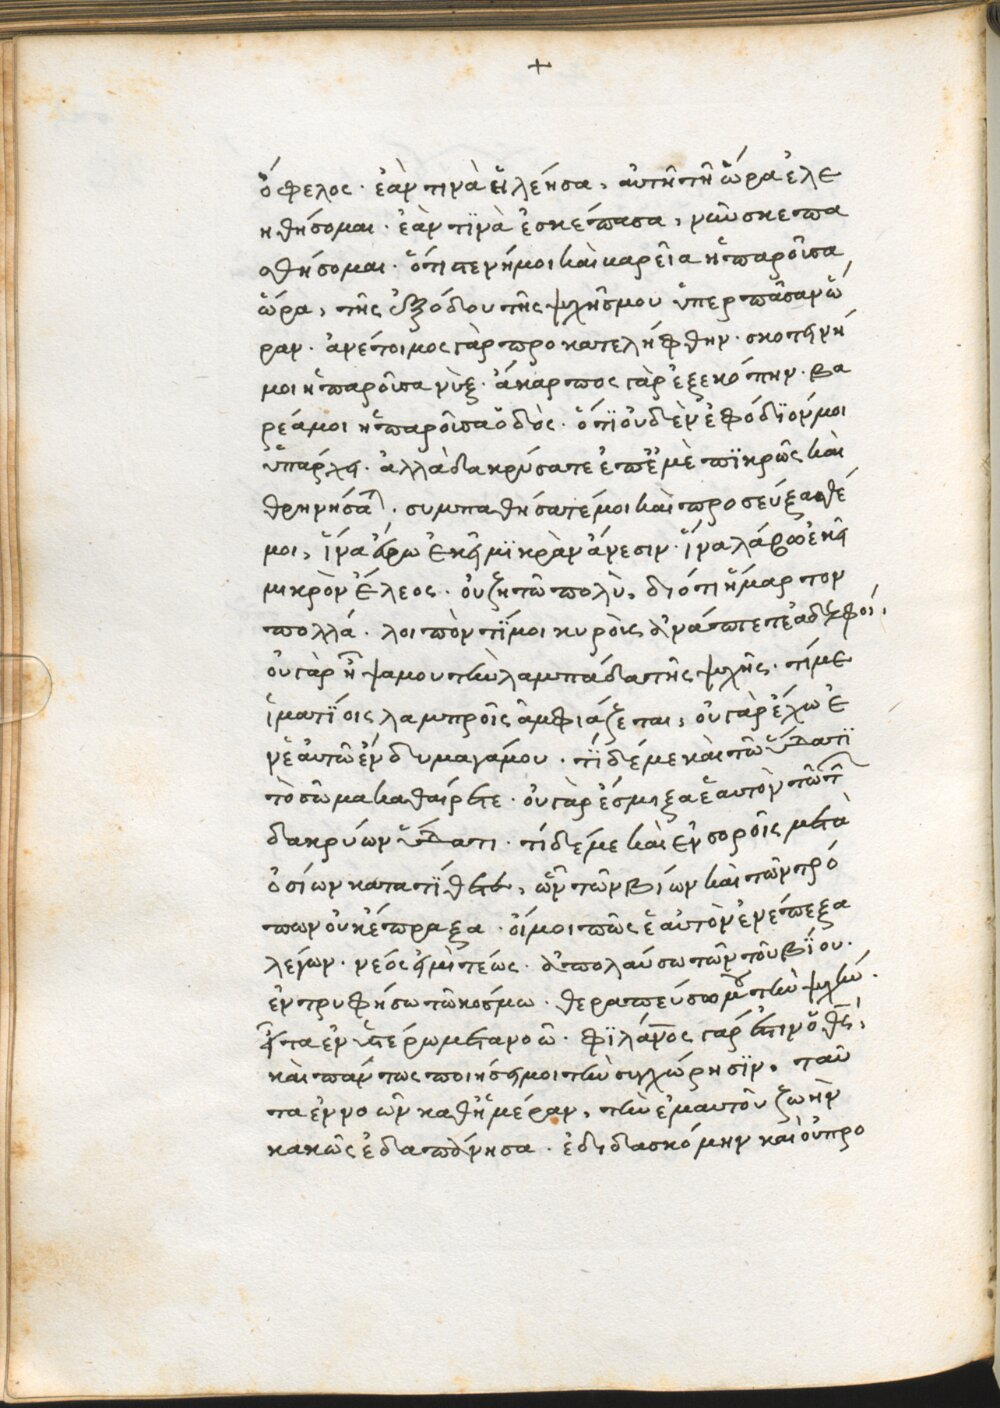 +
ὄφελος · ἐὰν τινὰ ἠλέησα, αὐτῆ τῆ ὥρα ἐλε
ηθήσομαι · ἐὰν τϊνὰ ἐσκέπασα, νῦν σκεπα
σθήσομαι · ὅτι πενήμοι καὶ καρεῖα ἡ παροῦσα
ὥρα, τῆς ἐξόδου τῆς ψχῆς μου ὑπερ πᾶσαν ὥ
ραν · ἀνέτοιμος γὰρ προκατελήφθην · σκοτεινή
μοι ἡ παροῦσα νὺξ · ἄκαρπος γὰρ ἐξεκόπην · βα
ρεάμοι ἡ παροῦσα ὁδὸς · ὅτϊ οὐδὲν ἐφόδϊόν μοι
ὑπάρχει · ἀλλὰ δακρύσατε ἐπ' ἐμὲ πϊκρῶς καὶ
θρηνήσατε · συμπαθήσατέ μοι καὶ προσεύξασθέ
μοι, ἵνα εὕρω ἐκεῖ μϊκρὰν ἄνεσιν · ἵνα λάβω ἐκεῖ
μικρὸν ἔλεος · οὐ ζητῶ πολὺ, διότι ἥμαρτον
πολλά · λοιπὸν τΐ μοι κυροὺς ἀνάπτετε ἀδελφοί,
οὐ γὰρ ἧψάμου τὴν λαμπάδα τῆς ψχῆς · τί με
ἱματϊοις λαμπροῖς ἀμφιάζεται, οὐ γὰρ ἔχω ἐ
ν ἑαυτῶ ἔνδυμα γάμου · τΐ δέ με καὶ τῶ ὕδατϊ
τὸ σῶμα καθαίρετε · οὐ γὰρ ἔσμιξα ἑαυτὸν τῶ τῶν
δακρύων ὕδατι · τί δέ με καὶ ἐν σοροῖς μετὰ
ὁσίων κατατϊθετε, ὧν τῶν βίων καὶ τῶν τρό
πων οὐκ ἔπραξα · οἴμοι πῶς ἑαυτὸν ἐνέπεξα
λέγων · νέος εἰμὶ τέως · ἀπολαύσω τῶν τοῦ βΐου ·
ἐντρυφήσω τῶ κόσμω · θεραπεύσω μου τὴν ψχήν ·
εἶτα ἐν ὑστέρω μετανοῶ · φϊλάνος γάρ ἐστιν ὁ θς,
καὶ πάντως ποιήσει μοι τὴν συγχώρησϊν, ταῦ
τα ἐννοῶν καθ' ἡμέραν, τὴν ἐμαυτοῦ ζωὴν
κακῶς ἐδαπάνησα · ἐδιδασκόμην καὶ οὐ προ